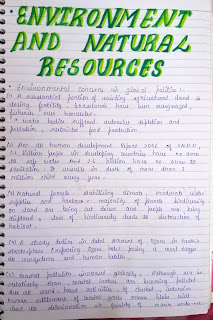 ENVIRONMENT
AND NATURAL
RESOURCES
• Environmental concerns in global politics :-
(i) A substantial portion of existing agricultural land is
losing fertility. Grasslands have been overgrazed,
fisheries over harvested.
• water bodies suffered extensive depletion and
pollution, restricted food production
(ii) Acc. to human development report 2006 of UNDP,
billion people in developing countries have no access
to safe water and 2.6 billion have no access to
sanitation. It results in death of more than 3
million child every year.
(iii) Natural forests stabilizing climate, moderate water
supplies and harbour majority of planet's biodiversity
on land are being cut down and people are being
displaced. Loss of biodiversity leads to destruction of
habitat.
(iv) A steady decline in total amount of Ozone in Earth's
stratosphere (referring Ozone hole) posing a real danger
to ecosystems and human health.
(v) Coastal pollution increased globally. Although sea is
relatively clean, coastal waters are becoming polluted
due to land based activities.
human settlement of coastal zones across globe will
lead to deterioration in quality of marine